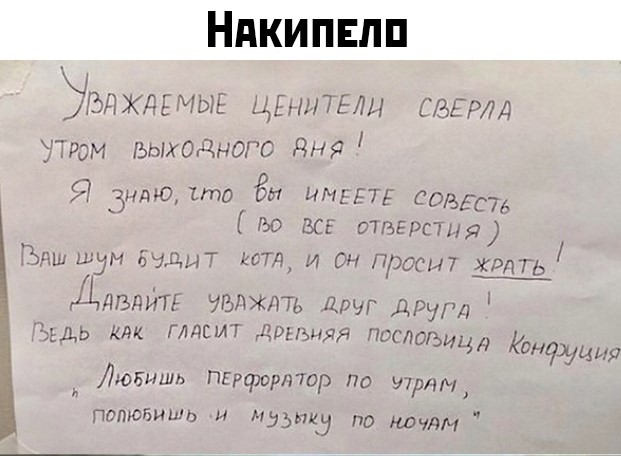 Накипело
Уважаемые ценители сверла
утром выходного дня!
Я знаю, что вы имеете совесть
( во все отверстия )
Ваш шум будит кота, и он просит жрать!
Давайте уважать друг друга!
Ведь как гласит древняя пословица Конфуция
„Любишь перфоратор по утрам,
полюбишь и музыку по ночам"